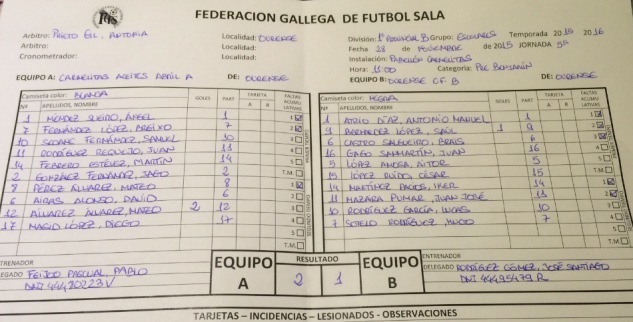 FEDERACION GALLEGA DE FUTBOL SALA
Arbitro: PRIETO GIL, ANTONIA Localidad: OURENSE División: 1ª PROVINCIAL B Grupo: ESCOLARES Temporada 2015 2016
Arbitro: Localidad: Fecha 28 de NOVIEMBRE de 2015 JORNADA 5ª
Cronometrador: Localidad: Instalación: PABELLÓN CARMELITAS
Hora: 11:00 Categoria: PRE BENJAMÍN
EQUIPO A: CARMELITAS ACEITES ABRIL A DE: OURENSE EQUIPO B: OURENSE CF B DE: OURENSE
Camiseta color: BLANCA GOLES PART TARJETA FALTAS ACUMULATIVAS Camiseta color: NEGRA GOLES PART TARJETA FALTAS ACUMULATIVAS
Nº APELLIDOS, NOMBRE A R Nº APELLIDOS, NOMBRE A R
1 MÉNDEZ SUEIRO, ÁNGEL 1 1 1 ATRIO DÍAZ, ANTONIO MANUEL 1 1
7 FERNÁNDEZ LÓPEZ, BREIXO 7 2 9 BERMÚDEZ LÓPEZ, SAÚL 1 9 2
10 SEOANE FERNÁNDEZ, SAMUEL 10 3 6 CASTRO SALGUEIRO, BRAIS 6 3
11 RODRÍGUEZ REQUEJO, JUAN 11 4 16 GAGO SANMARTÍN, JUAN 16 4
14 FEBRERO ESTÉVEZ, MARTÍN 14 5 5 LÓPEZ ANOSA, AITOR 5 5
2 GONZÁLEZ FERNÁNDEZ, IAGO 2 T.M. 15 LÓPEZ RUIDO, CÉSAR 15 T.M.
8 PÉREZ ÁLVAREZ, MATEO 8 1 14 MARTÍNEZ PACIOS, IKER 14 1
6 AIRAS ALONSO, DAVID 6 2 11 MAZARA PUMAR, JUAN JOSÉ 11 2
12 ÁLVAREZ ÁLVAREZ, MATEO 2 12 3 10 RODRÍGUEZ GARCÍA, LUCAS 10 3
17 MACIÁ LÓPEZ, DIEGO 17 4 7 SOTELO RODRÍGUEZ, HUGO 7 4
5 5
T.M. T.M.
ENTRENADOR EQUIPO A RESULTADO EQUIPO B ENTRENADOR
DELEGADO FEIJOO PASCUAL, PABLO 2 1 DELEGADO RODRÍGUEZ GÓMEZ, JOSÉ SANTIAGO
DNI 44470223V DNI 44495479 R
TARJETAS – INCIDENCIAS – LESIONADOS - OBSERVACIONES